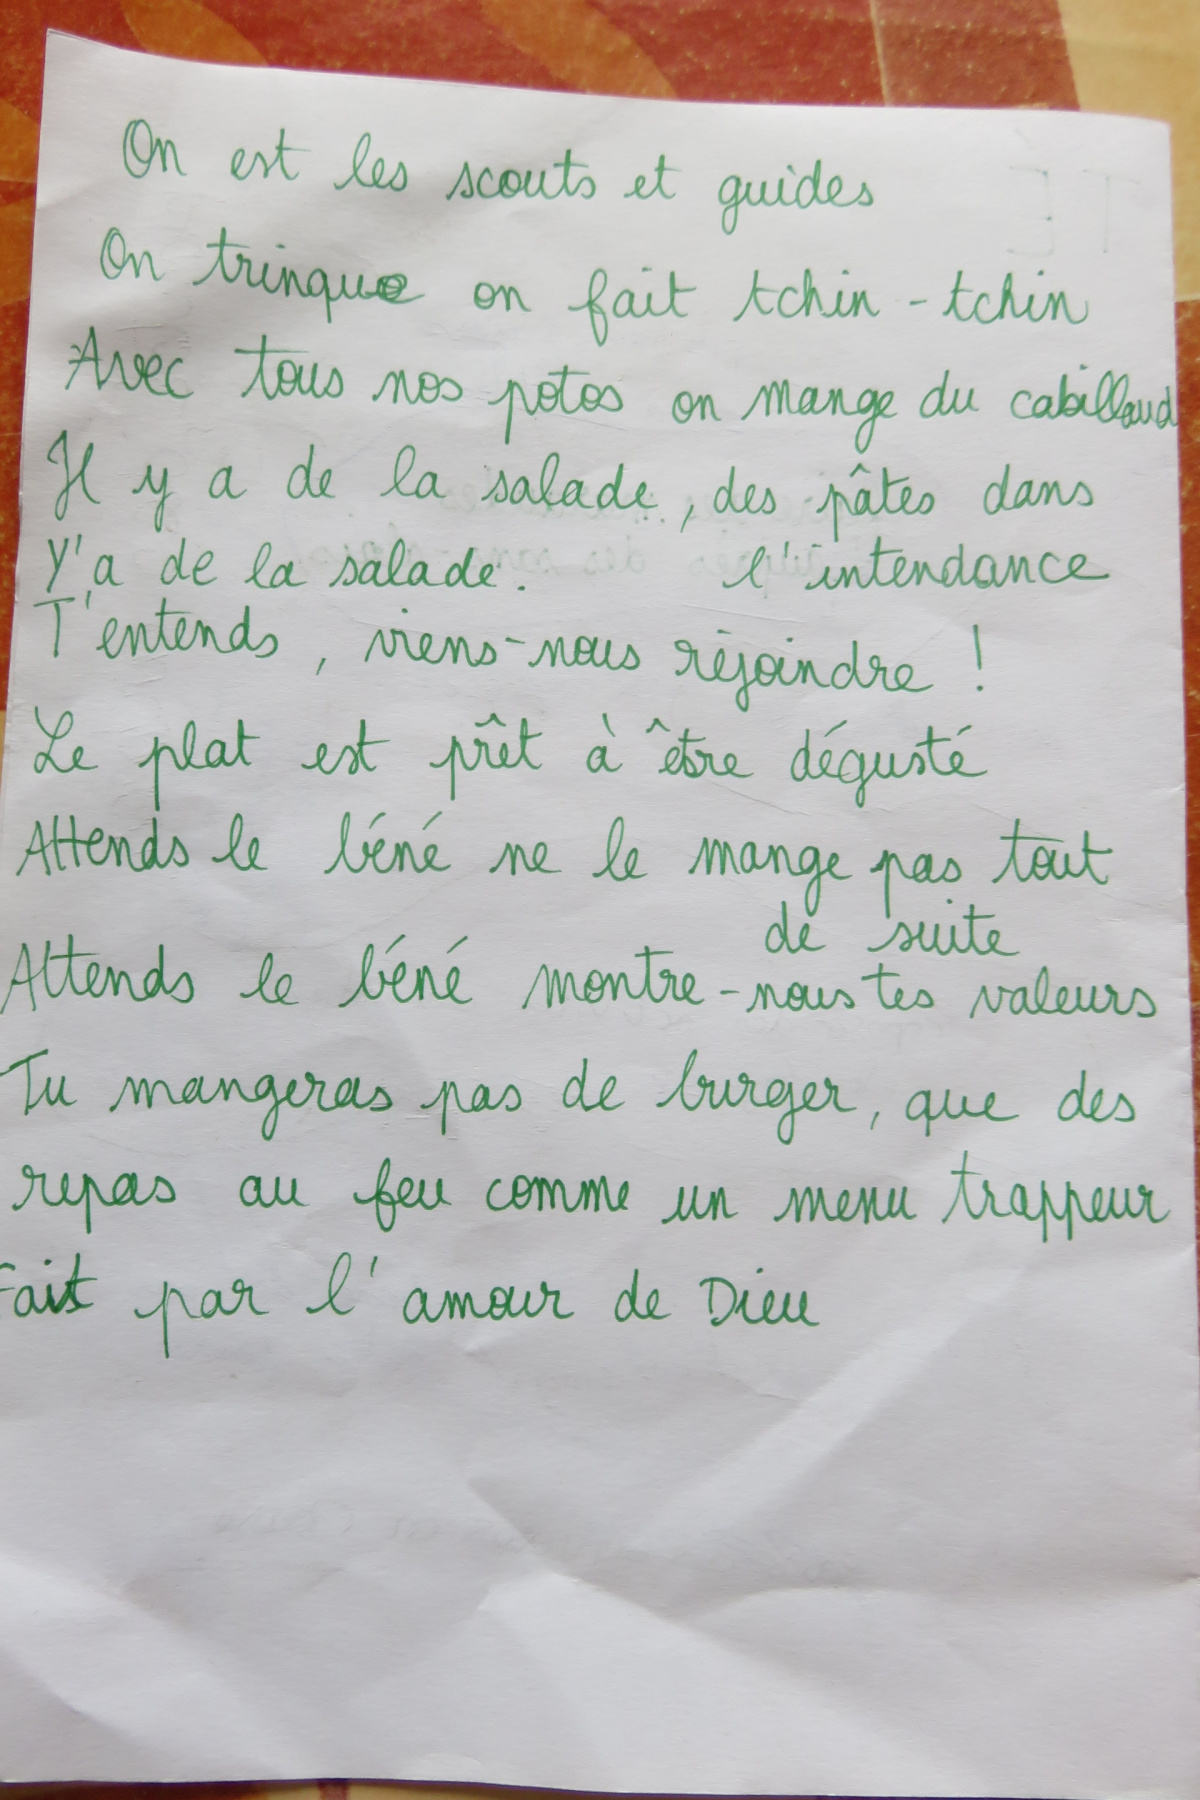 On est les scouts et guides
On trinque on fait tchin-tchin
Avec tous nos potos on mange du cabillaud
Il y a de la salade, des pâtes dans
l'intendance
Y'a de la salade.
T'entends, viens-nous réjoindre !
Le plat est prêt à être dégusté
Attends le béné ne le mange pas tout
de suite
Attends le béné montre-nous tes valeurs
Tu mangeras pas de burger, que des
repas au feu comme un menu trappeur
Fait par l'amour de Dieu